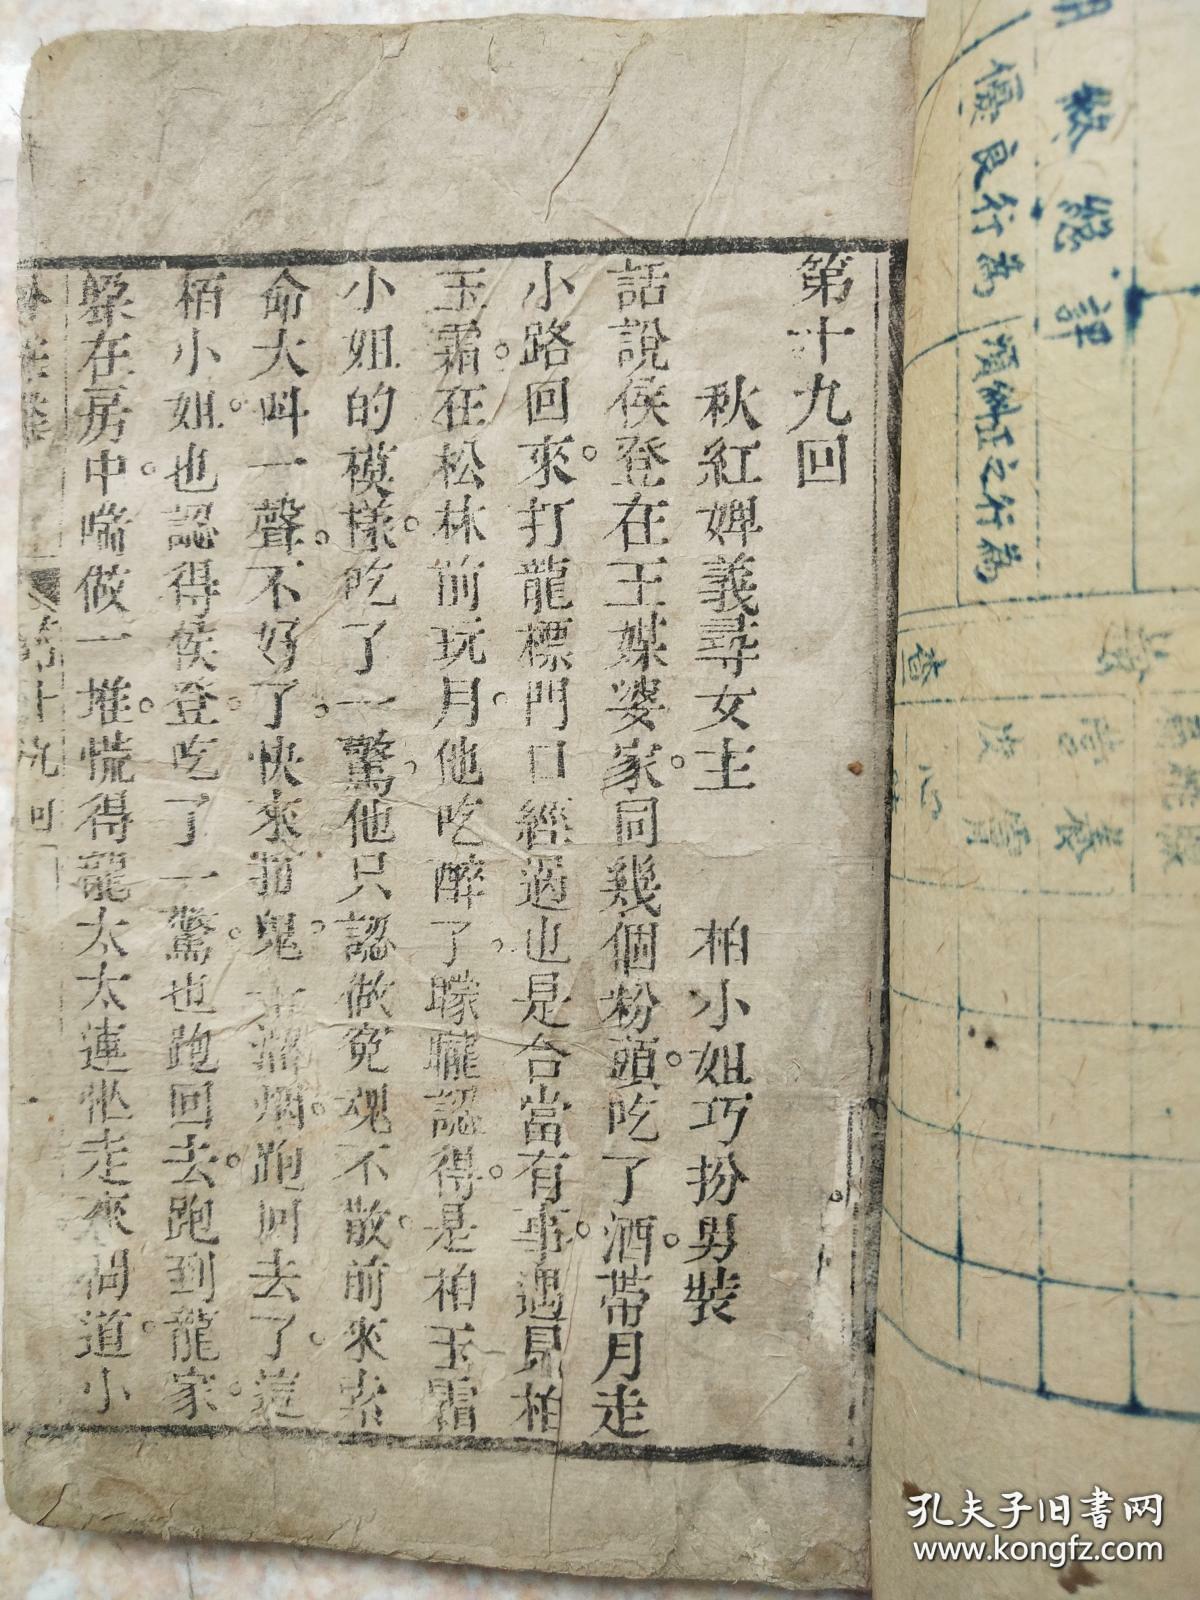 第十九回
秋紅婢義尋女主 柏小姐巧扮男裝
話說侯登在王媒婆家。同幾個粉頭。吃了酒。帶月走
小路回來。打龍標門口經過也是合當有事。遇見柏
玉霜。在松林前玩月。他吃醉了。朦朧認得。是柏玉霜
小姐的模樣。吃了一驚。他只認做冤魂不散。前來索
命大叫一聲。不好了。快來捉鬼。跑回去了。這
栢小姐。也認得侯登。吃了一驚。也跑回去。跑到龍家。
躲在房中。喘做一堆。慌得龍太太連忙走來。問道小
十九回
一
總評
優良行為
須糾正之行為
孔夫子旧書网
www.kongfz.com